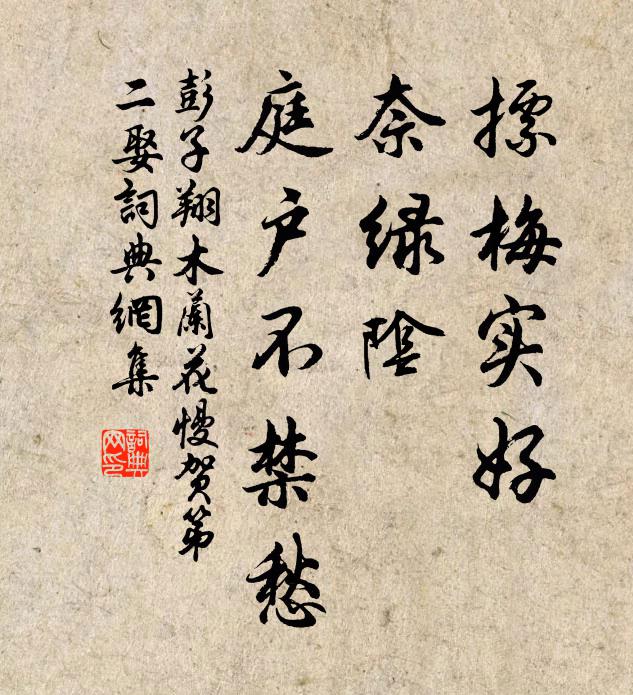 摽梅实好
奈绿阴
庭户不禁愁
彭子翔木蘭花慢贺第
二娶詞典網集
詞典
网印